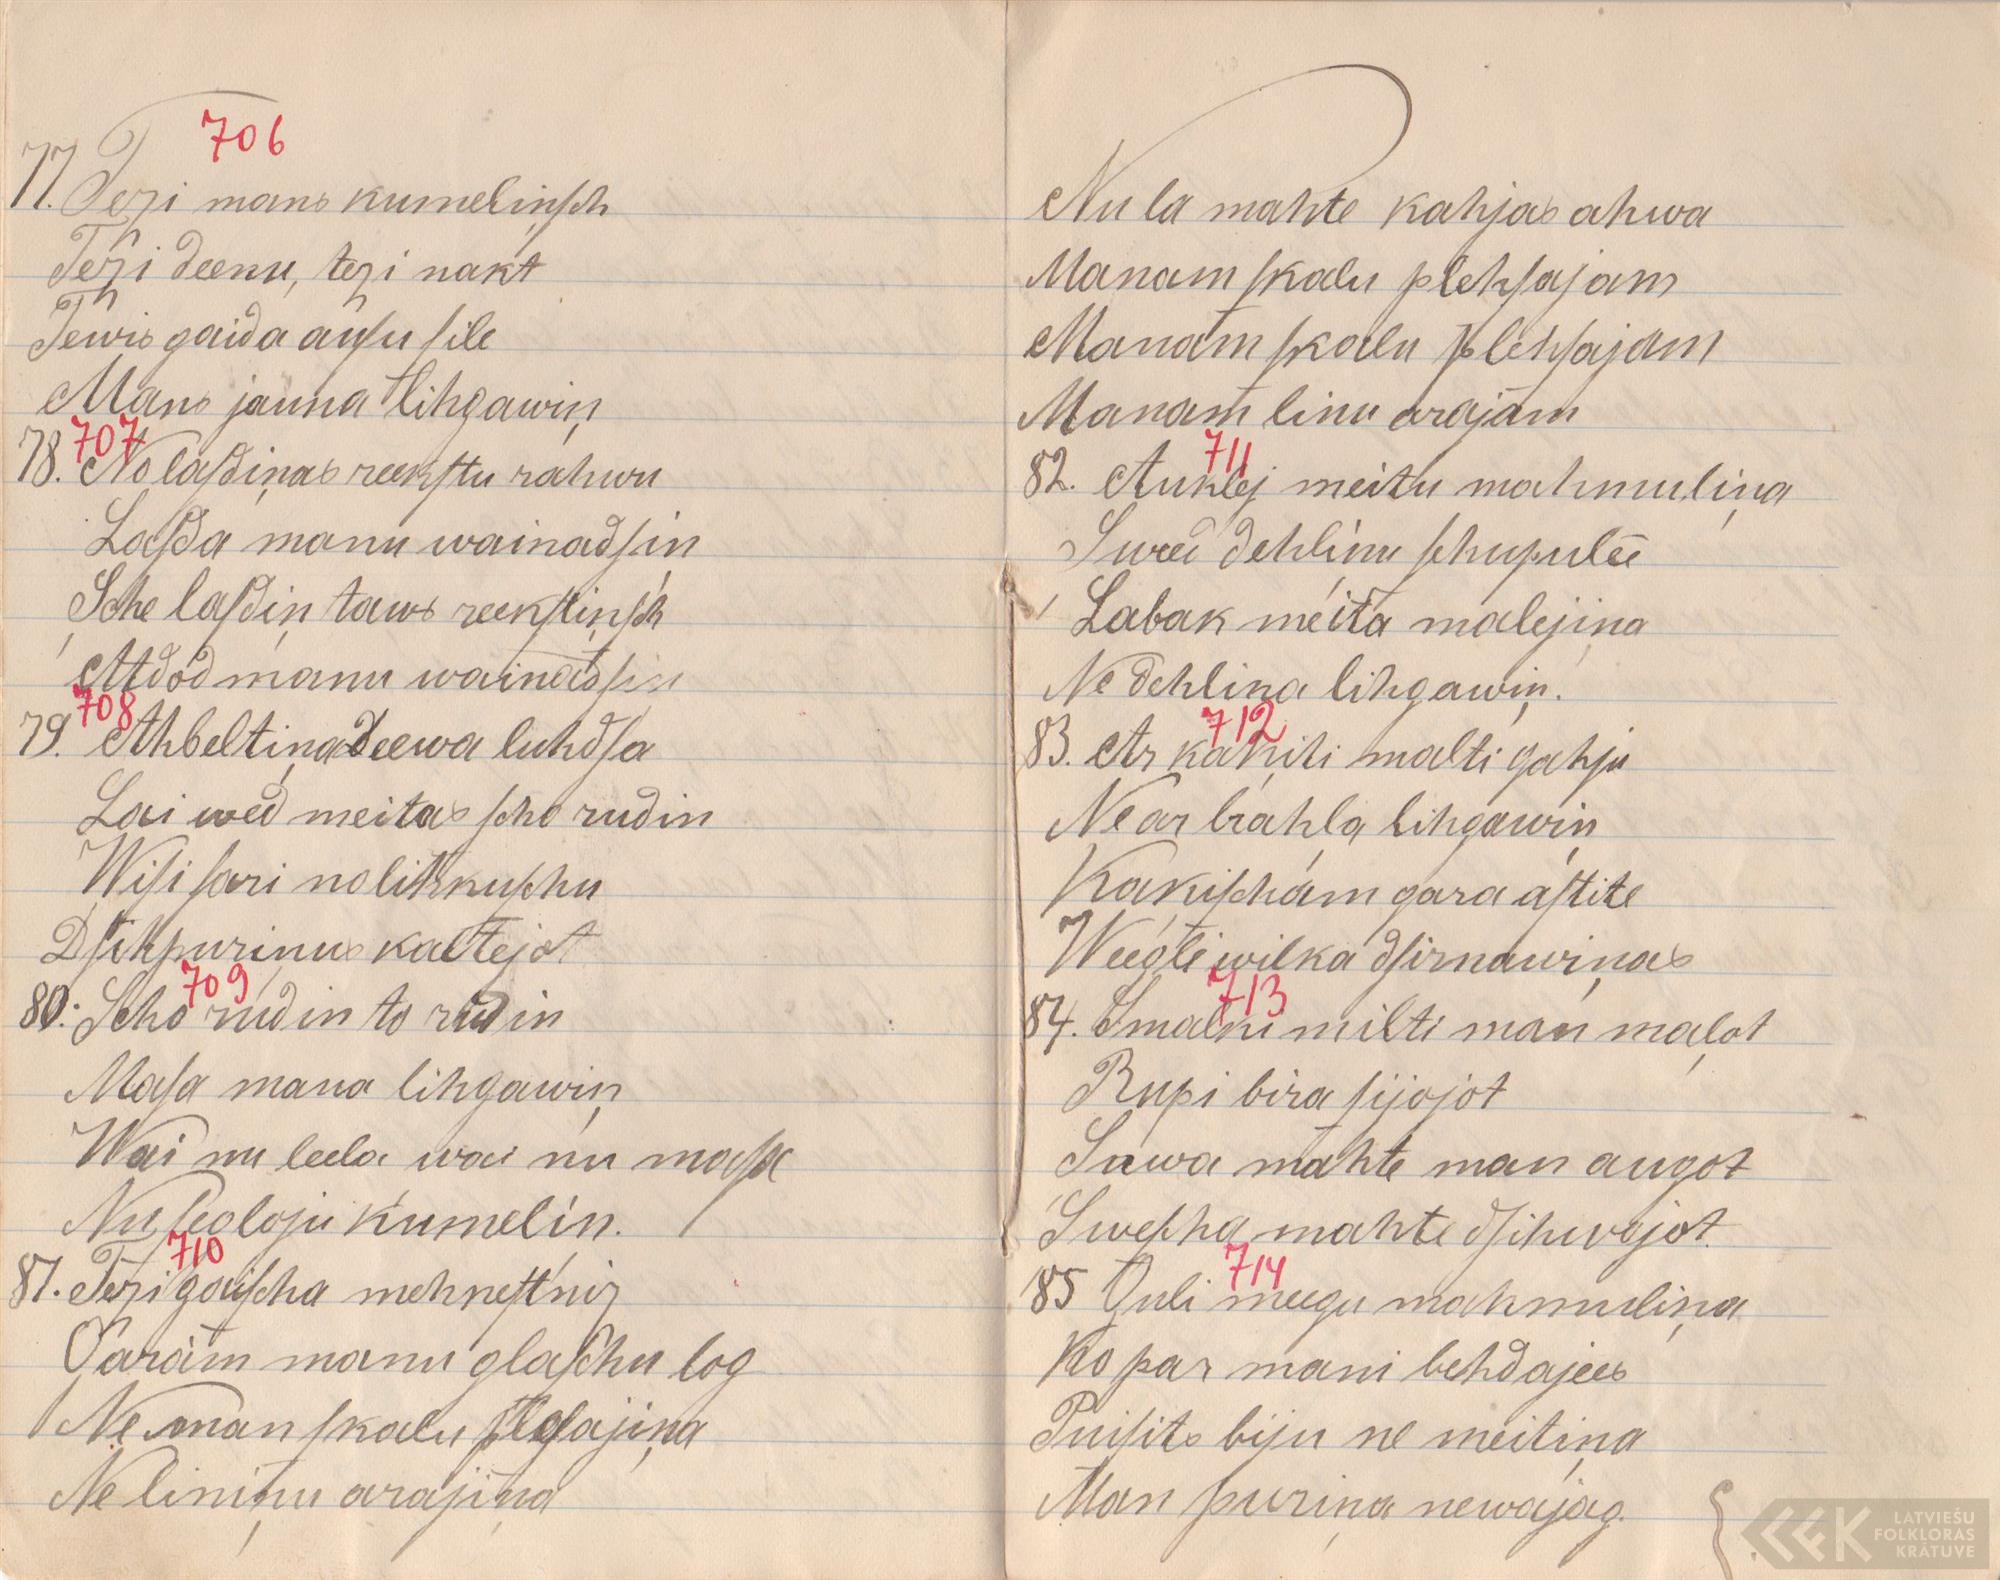 706
77. Tezi mans kumeliņsch
Tezi deenu, tezi nakt
Tewis gaida ausu sile
Mans jauna lihgawiņ
707
78. No lasdiņas reekstu rahwu
Lasda manu wainadsin
Sche lasdiņ taws reekstiņsch
Atdod manu wainadsin
708
79. Ahbeltiņa Deewa luhdsa
Lai wed meitas scho rudin
Wisi sari nolihkuschu
Dsihpuriņus kaltejot
709
80. Scho rudin to rudin
Masa mana lihgawiņ
Wai nu leela wai nu masa
Nu seoloju kumelin.
710
81. Tezi gaischa mehnestniz
Garam manu glaschu log
Ne man skalu plesajiņa
Ne liniņu arajiņa
Nu la mahte kahjas ahwa
Manam skalu plehsajam
Manam skalu plehsajam
Manam linu arajam
711
82. Auklej meitu mahmuliņa
Swed dehlinu schupulee
Labak meita malejiņa
Ne dehliņa lihgawiņ.
712
83. Ar kaķiti malti gahju
Ne ar brahļa lihgawiņ
Kakischam gara astite
Weegli wilka dsirnawiņas
713
84. Smalki milti man maļot
Rupi bira sijojot
Sawa mahte man augot
Swescha mahte dsihwojot.
714
85 Guli meegu mahmuliņa
Ko par mani behdajees
Puisits biju ne meitiņa
Man puriņa newajag.
LATVIEŠU
FOLKLORAS
KRĀTUVE